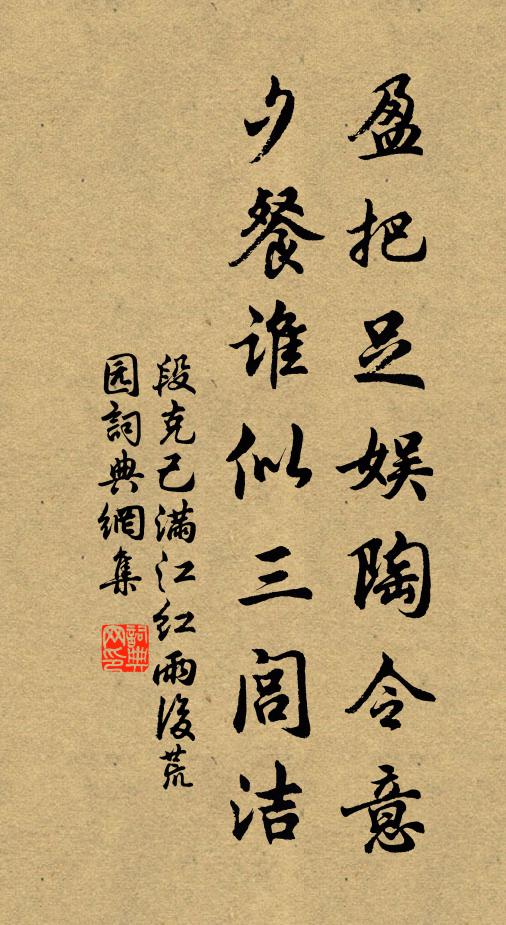 盈把足娱陶令意
夕餐谁似三闾洁
段克己满江红雨後荒
园詞典網集
詞典
网印